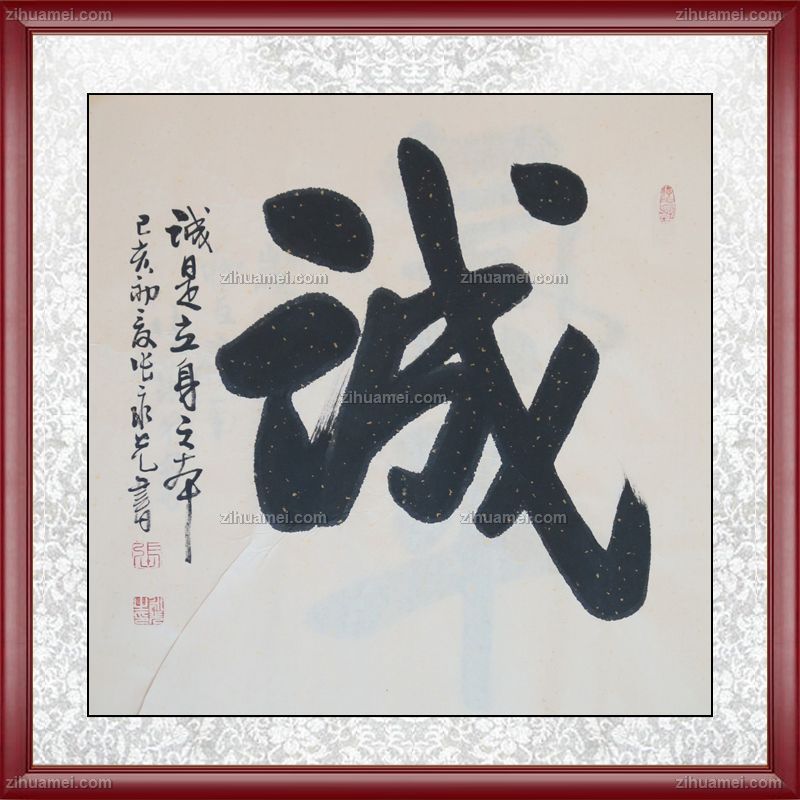 zihuamei.com zihuamei.com
誠
誠是立身之本
己亥初夏張永光書
張
zihuamei.com zihuamei.com
zihuamei.com
zihuamei.com zihuamei.com
zihuamei.com zihuamei.com